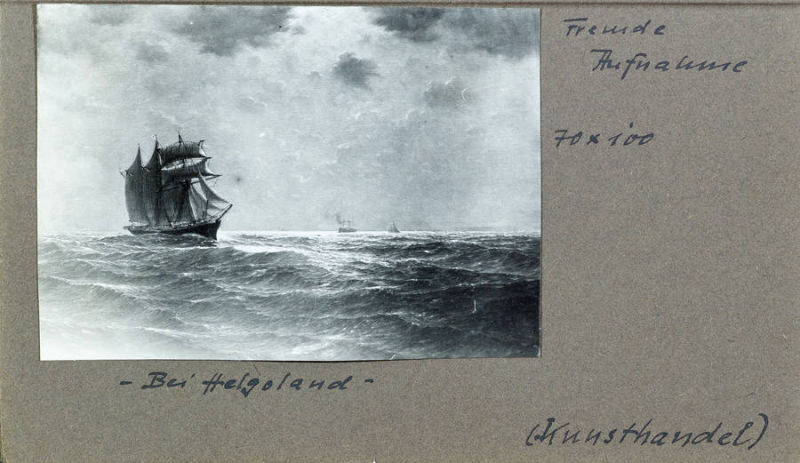 Fremde
Aufnahme
70 x 100
- Bei Helgoland -
(Kunsthandel)